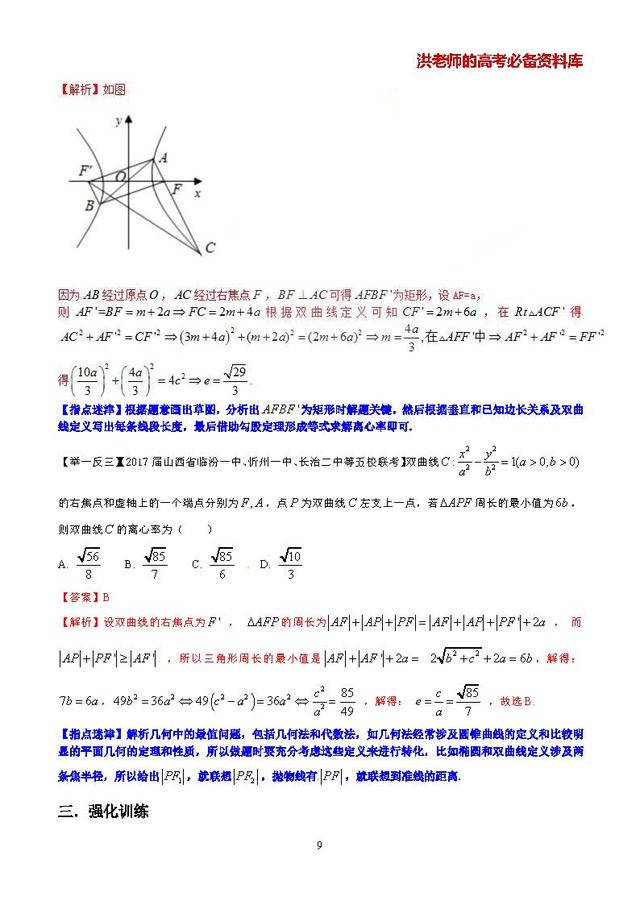 洪老师的高考必备资料库
【解析】如图
y
A
F'
O
F
x
B
C
因为 AB 经过原点 O ， AC 经过右焦点 F ， BF ⊥ AC 可得 AFBF ' 为矩形，设 AF=a，
则 AF '=BF = m+2a ⇒ FC = 2m+4a 根据双曲线定义可知 CF ' = 2m+6a ，在 Rt△ACF ' 得
AC² + AF '² = CF '² ⇒ (3m+4a)² +(m+2a)² = (2m+6a)² ⇒ m = 4a/3 ,在△AFF '中 ⇒ AF² + AF '² = FF '²
得 (10a/3)² + (4a/3)² = 4c² ⇒ e = √29/3 .
【指点迷津】根据题意画出草图，分析出 AFBF ' 为矩形时解题关键，然后根据垂直和已知边长关系及双曲
线定义写出每条线段长度，最后借助勾股定理形成等式求解离心率即可.
【举一反三】【2017 届山西省临汾一中、忻州一中、长治二中等五校联考】双曲线 C : x²/a² − y²/b² = 1(a > 0, b > 0)
的右焦点和虚轴上的一个端点分别为 F, A ，点 P 为双曲线 C 左支上一点，若 ΔAPF 周长的最小值为 6b ，
则双曲线 C 的离心率为（　　）
A. √56/8 B. √85/7 C. √85/6 D. √10/3
【答案】B
【解析】设双曲线的右焦点为 F ' ， ΔAFP 的周长为 |AF|+|AP|+|PF| = |AF|+|AP|+|PF '|+2a ，而
|AP|+|PF '| ≥ |AF '| ，所以三角形周长的最小值是 |AF|+|AF '|+2a = 2√b²+c² +2a = 6b ，解得：
7b = 6a ， 49b² = 36a² ⇔ 49(c² − a²) = 36a² ⇔ c²/a² = 85/49 ，解得： e = c/a = √85/7 ，故选 B.
【指点迷津】解析几何中的最值问题，包括几何法和代数法，如几何法经常涉及圆锥曲线的定义和比较明
显的平面几何的定理和性质，所以做题时要充分考虑这些定义来进行转化，比如椭圆和双曲线定义涉及两
条焦半径，所以给出 |PF₁| ，就联想 |PF₂| ，抛物线有 |PF| ，就联想到准线的距离.
三．强化训练
9